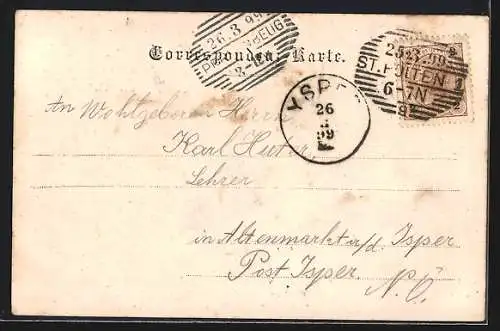 26.3.99
Correspondenz-Karte.
2
25.3.99
ST. PÖLTEN 1
6-7N
YSPER
26
3
99
An Wohlgeboren Herrn
Karl Huter,
Lehrer
in Altenmarkt a/d. Isper
Post Isper. N.Ö.